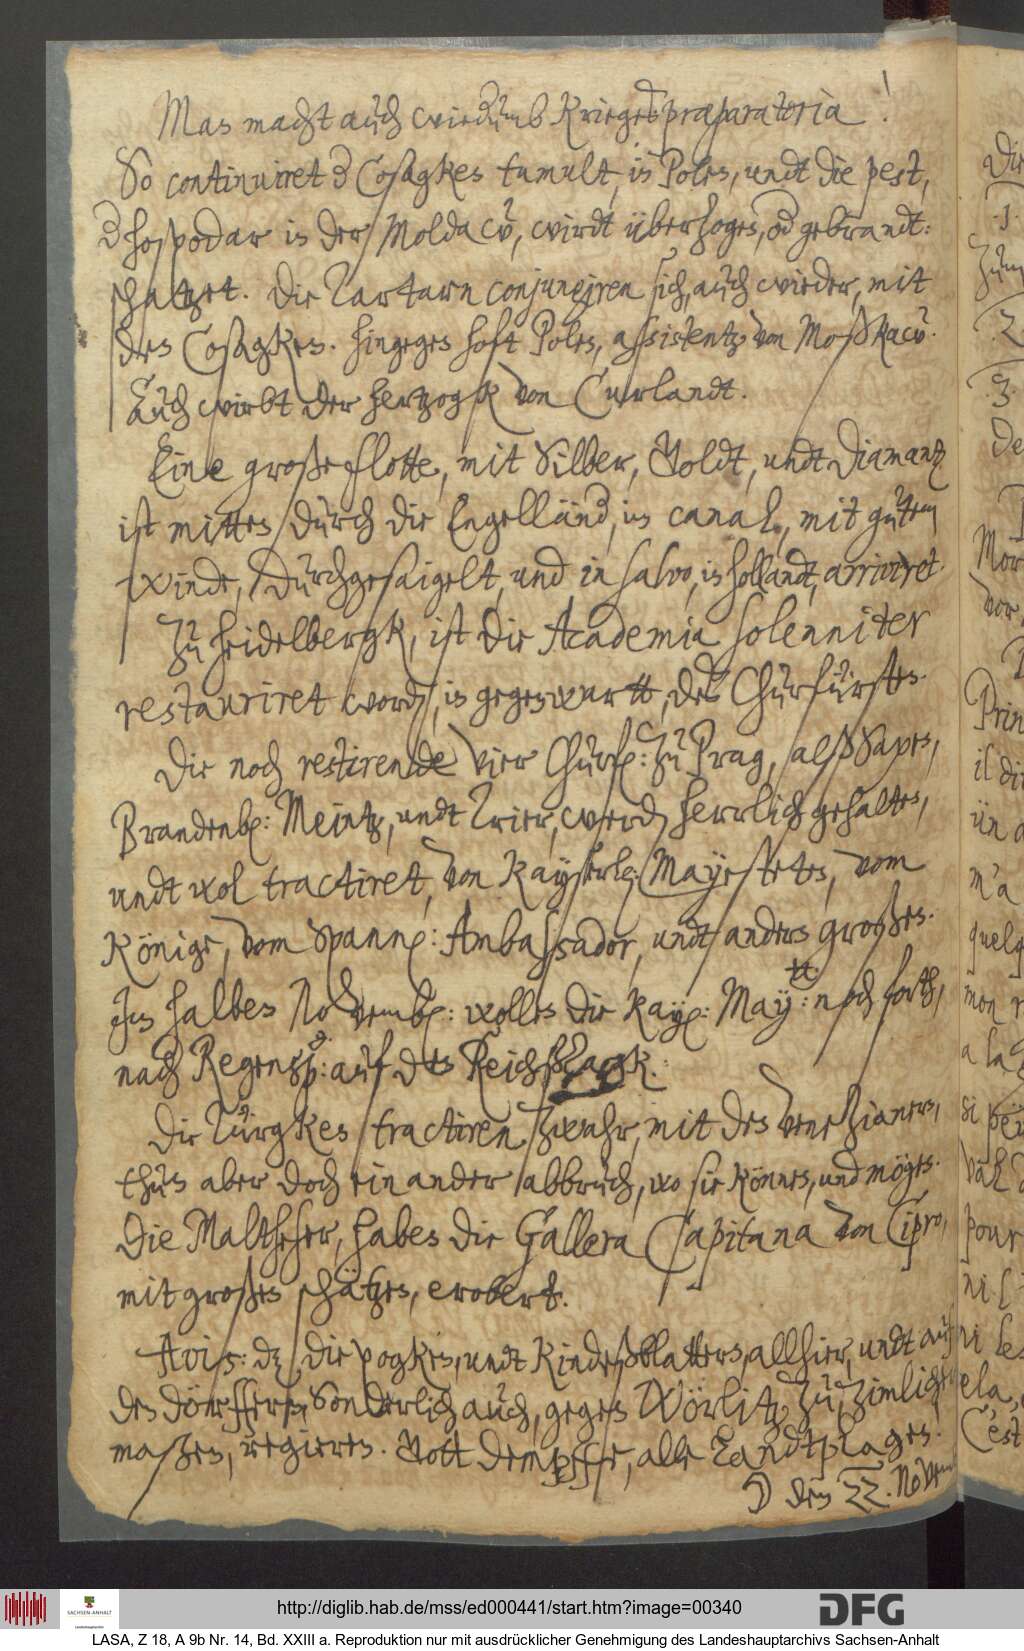 Man macht auch wiederumb Kriegespræparatoria!
So continuiret d Cosagken tumult, in Polen, undt die pest,
d hospodar in der Moldaw, wirdt überzogen, od gebrandt:
schatzet. Die Tartarn conjungiren sich, auch wieder, mit
den Cosagken. hingegen hoft Polen, assistentz von Moßkaw.
Auch wirbt der hertzogk von Curlandt.
Eine große flotte, mit Silber, Goldt, undt Diamantz
ist mitten durch die Engelländ, in canal, mit gutem
winde, durchgesaigelt, und in salvo, in hollandt, arriviret.
Zu heidelbergk, ist die Academia solenniter
restauriret word, in gegenwartt, des Churfürsten.
Die noch restirende vier Churf: zu Prag, alß Saxen,
Brandenb: Meintz, undt Trier, werd herrlich gehalten,
undt wol tractiret, von Kayserl: Mayesteten, vom
Könige, vom Spann: Ambassador, undt andern großen.
Im halben Novemb: wollen die Kay: May: tt. noch forth,
nach Regensp: auf den Reichßtagk.
Die Türgken tractiren zwahr, mit den Venezianern,
thun aber doch einander abbruch, wo sie können, und mögen.
Die Maltheser, haben die Gallera Capitana von Cipro,
mit großen schätzen, erobert.
Avis: dz die pogken, undt Kindeßblattern, allhier, undt auf
den dörffern, Sonderlich auch, gegen Wörlitz zu, zimlicher
maßen, regieren. Gott dempffe, alle Landtplagen.
☽ den 22. Novem
http://diglib.hab.de/mss/ed000441/start.htm?image=00340
DFG
SACHSEN-ANHALT
LASA, Z 18, A 9b Nr. 14, Bd. XXIII a. Reproduktion nur mit ausdrücklicher Genehmigung des Landeshauptarchivs Sachsen-Anhalt